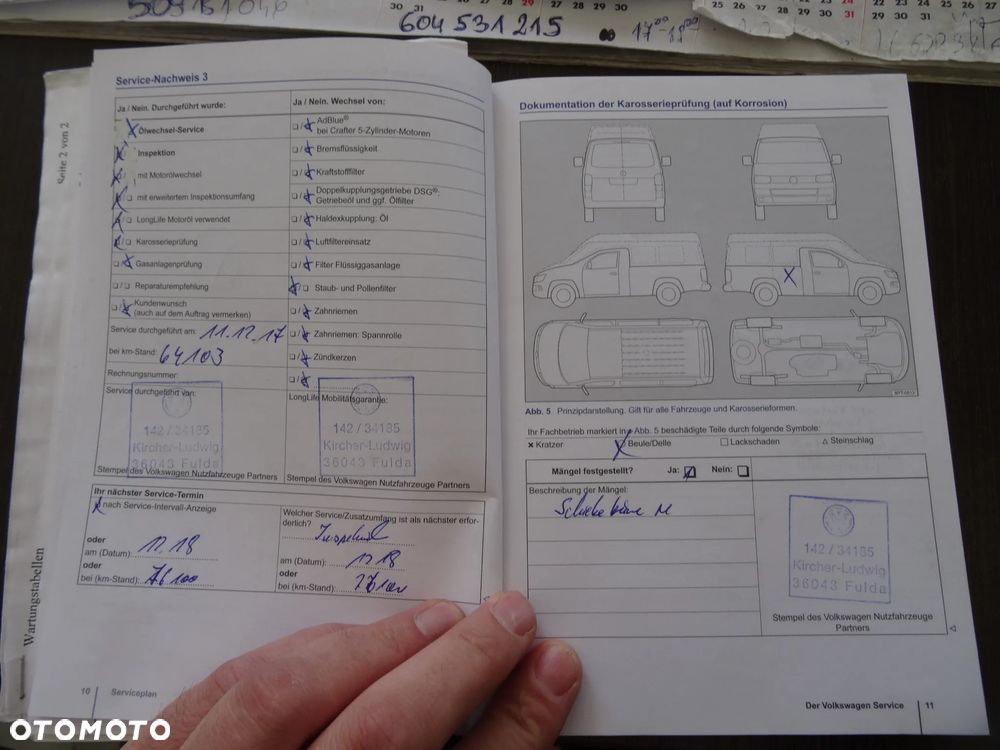 604 531 215
17⁰⁰-18⁰⁰
25 26 27 28 29 30 31
Seite 2 von 2
Wartungstabellen
Service-Nachweis 3
Ja / Nein. Durchgeführt wurde:
Ölwechsel-Service
Inspektion
mit Motorölwechsel
mit erweitertem Inspektionsumfang
LongLife Motoröl verwendet
Karosserieprüfung
Gasanlagenprüfung
Reparaturempfehlung
Kundenwunsch
(auch auf dem Auftrag vermerken)
Service durchgeführt am: 11.12.17
bei km-Stand: 64103
Rechnungsnummer:
Service durchgeführt von:
142 / 34135
Kircher-Ludwig
36043 Fulda
Stempel des Volkswagen Nutzfahrzeuge Partners
Ja / Nein. Wechsel von:
AdBlue®
bei Crafter 5-Zylinder-Motoren
Bremsflüssigkeit
Kraftstofffilter
Doppelkupplungsgetriebe DSG®:
Getriebeöl und ggf. Ölfilter
Haldexkupplung: Öl
Luftfiltereinsatz
Filter Flüssiggasanlage
Staub- und Pollenfilter
Zahnriemen
Zahnriemen: Spannrolle
Zündkerzen
LongLife Mobilitätsgarantie:
142 / 34135
Kircher-Ludwig
36043 Fulda
Stempel des Volkswagen Nutzfahrzeuge Partners
Ihr nächster Service-Termin
nach Service-Intervall-Anzeige
oder
am (Datum): 12.18
oder
bei (km-Stand): 76100
Welcher Service/Zusatzumfang ist als nächster erfor-
derlich?
am (Datum): 12 18
oder
bei (km-Stand):
10 Serviceplan
Dokumentation der Karosserieprüfung (auf Korrosion)
Abb. 5 Prinzipdarstellung. Gilt für alle Fahrzeuge und Karosserieformen.
Ihr Fachbetrieb markiert in Abb. 5 beschädigte Teile durch folgende Symbole:
× Kratzer Beule/Delle □ Lackschaden △ Steinschlag
Mängel festgestellt? Ja: Nein:
Beschreibung der Mängel:
142 / 34135
Kircher-Ludwig
36043 Fulda
Stempel des Volkswagen Nutzfahrzeuge
Partners
Der Volkswagen Service 11
OTOMOTO